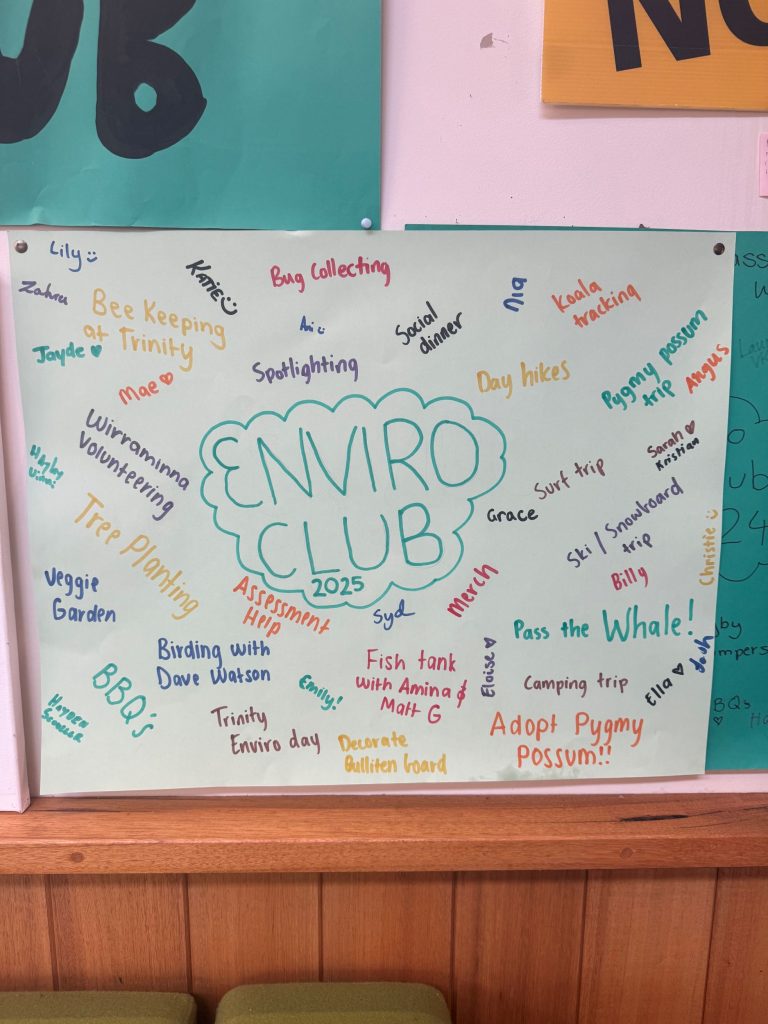 UB
NO
Lily
Zahra
Katie
Bug Collecting
Nia
Koala
tracking
Bee Keeping
at Trinity
Ani
Social
dinner
Jayde
Mae
Spotlighting
Day hikes
Pygmy possum
trip
Angus
Wirraminna
Volunteering
ENVIRO
CLUB
2025
Sarah
Kristian
Surf trip
Grace
Ski / Snowboard
trip
Christie
Tree Planting
Veggie
Garden
Assessment
Help
Syd
Merch
Billy
Pass the Whale!
Josh
Birding with
Dave Watson
Fish tank
with Amina &
Matt G
Eloise
Camping trip
Ella
BBQ's
Emily!
Hayden
Trinity
Enviro day
Decorate
Bulliten board
Adopt Pygmy
Possum!!
24
BQs